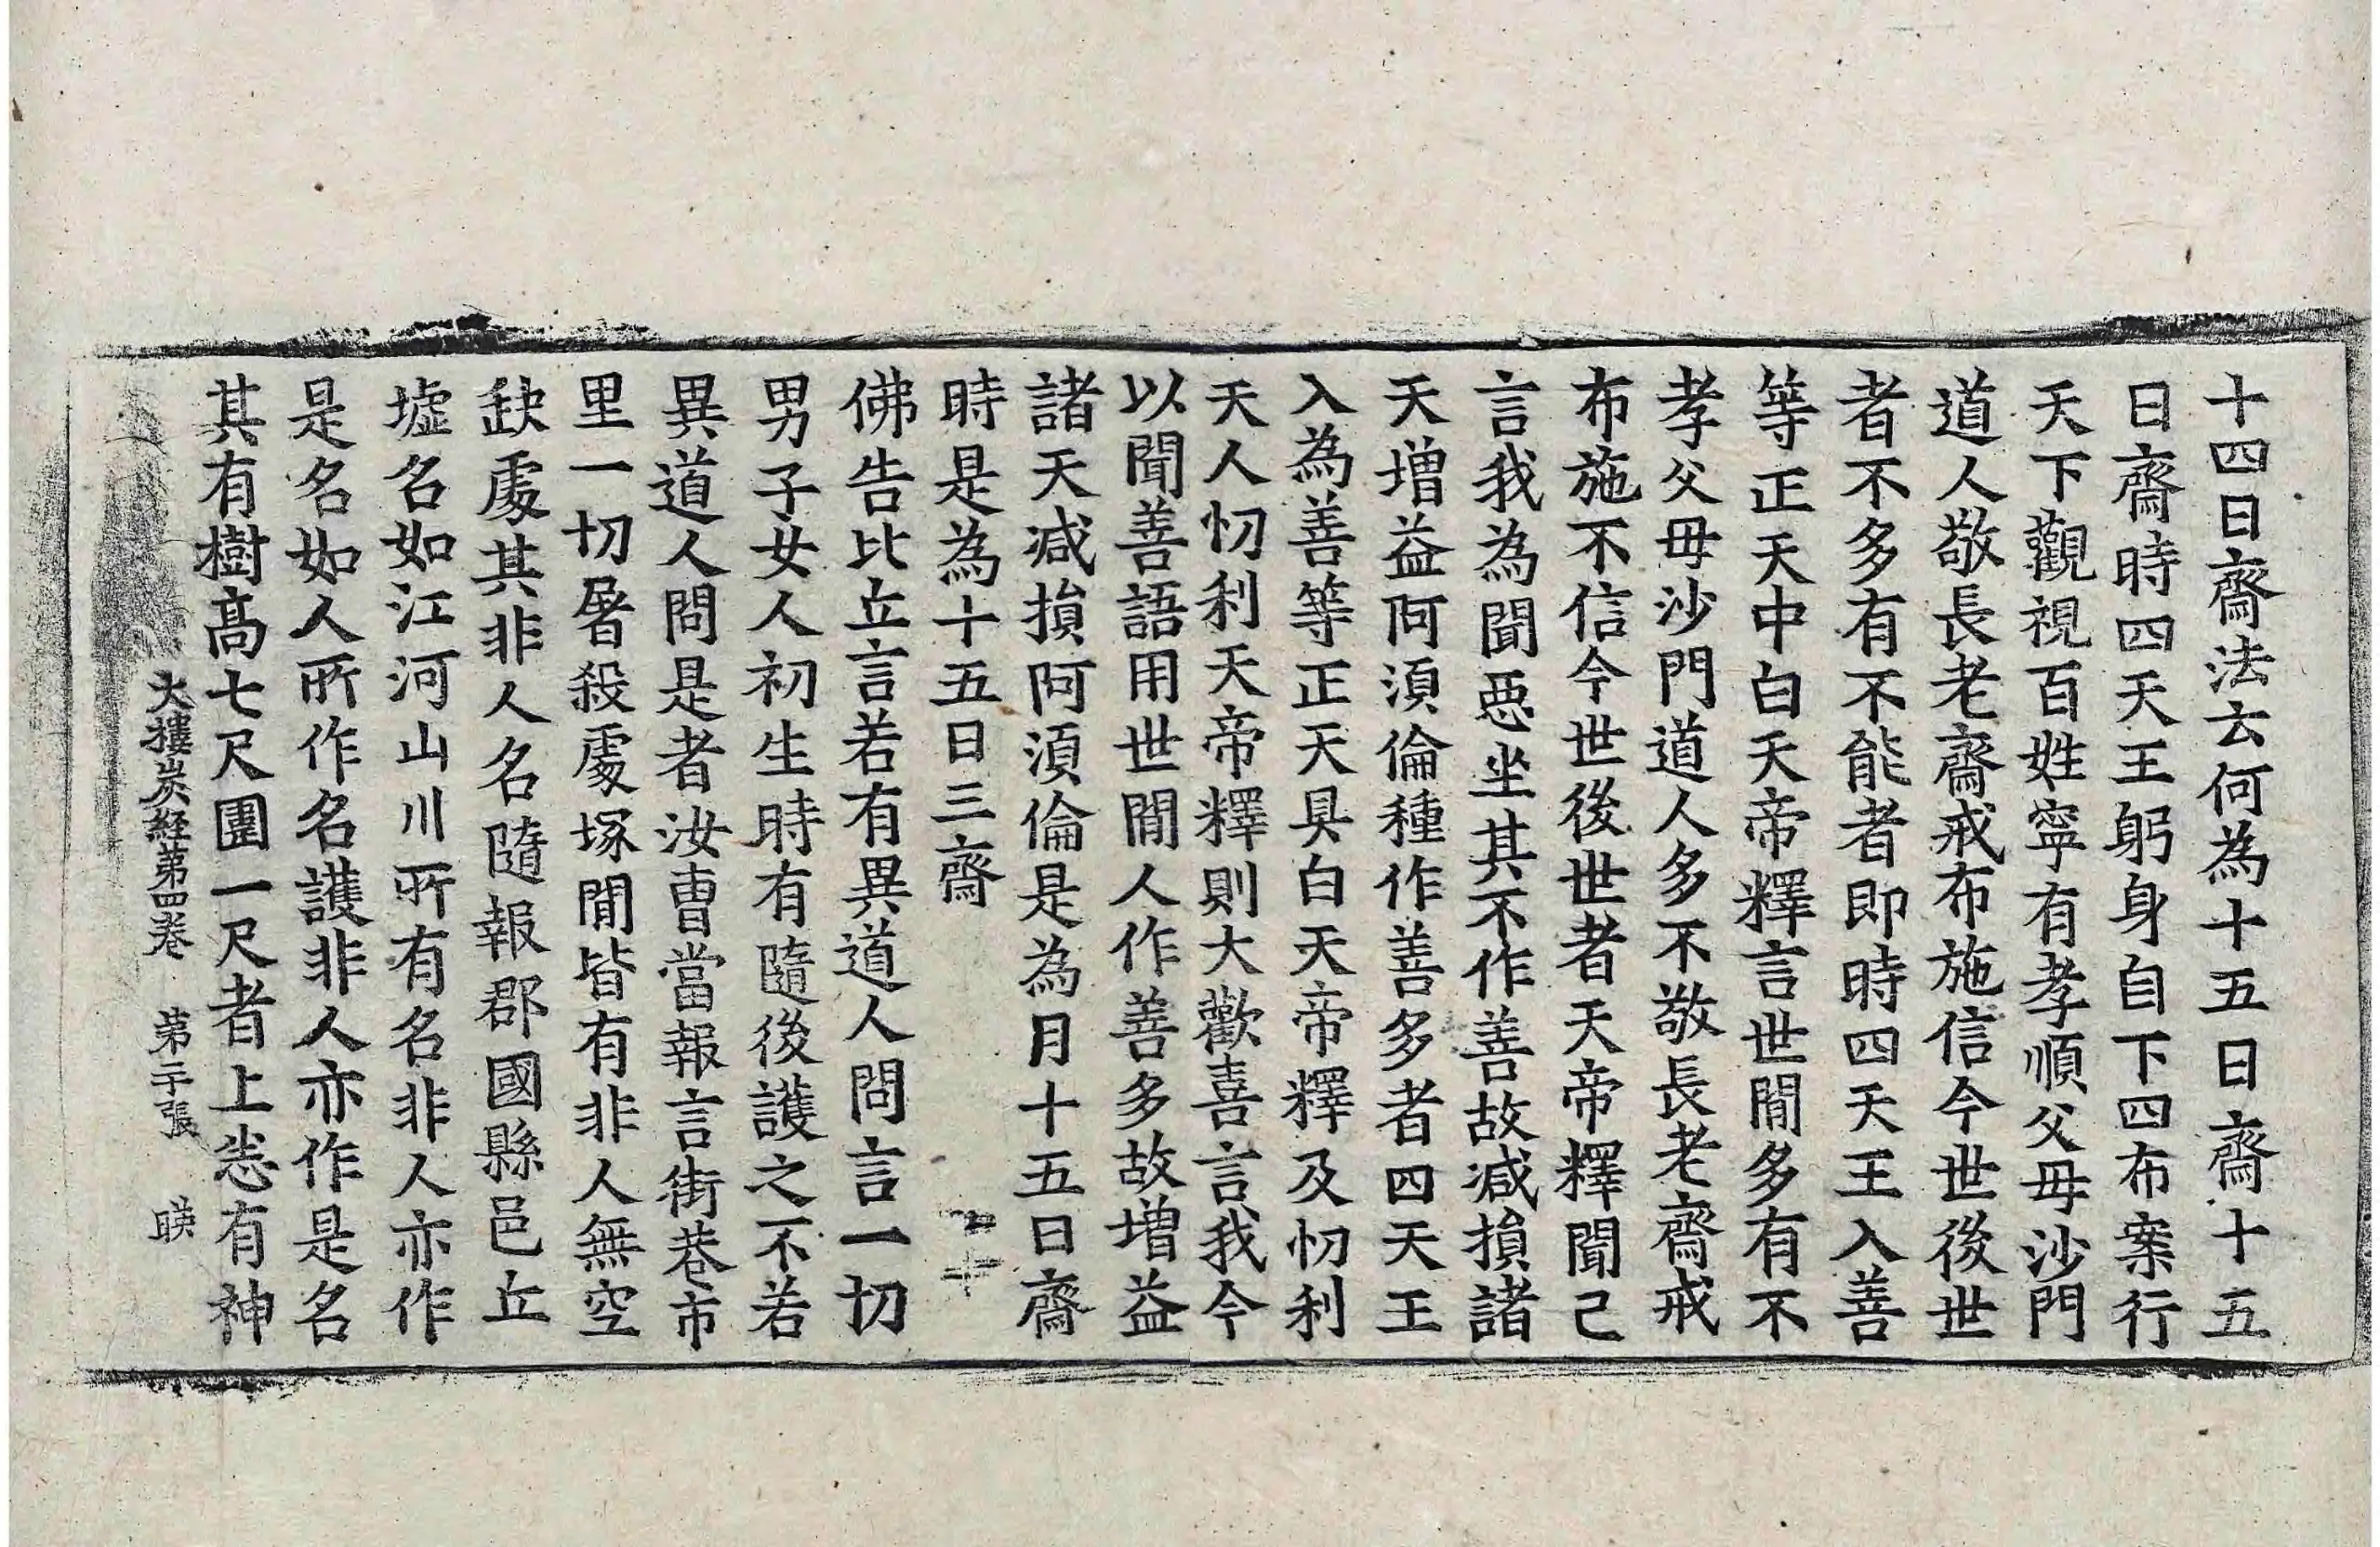 十四日齋法云何為十五日齋十五
日齋時四天王躬身自下四布案行
天下觀視百姓寧有孝順父母沙門
道人敬長老齋戒布施信今世後世
者不多有不能者即時四天王入善
等正天中白天帝釋言世閒多有不
孝父母沙門道人多不敬長老齋戒
布施不信今世後世者天帝釋聞已
言我為聞惡坐其不作善故减損諸
天增益阿湏倫種作善多者四天王
入為善等正天具白天帝釋及忉利
天人忉利天帝釋則大歡喜言我今
以聞善語用世閒人作善多故增益
諸天减損阿湏倫是為月十五日齋
時是為十五日三齋
佛告比丘言若有異道人問言一切
男子女人初生時有隨後護之不若
異道人問是者汝曹當報言街巷市
里一切屠殺處塚閒皆有非人無空
缺處其非人名隨報郡國縣邑丘
墟名如江河山川所有名非人亦作
是名如人所作名護非人亦作是名
其有樹高七尺圍一尺者上恙有神
大樓炭経第四卷 第二十張 䀹